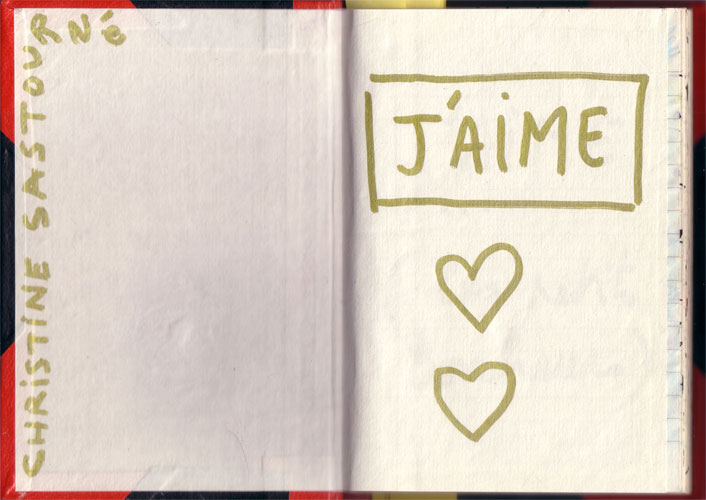 CHRISTINE SASTOURNÉ
J'AIME